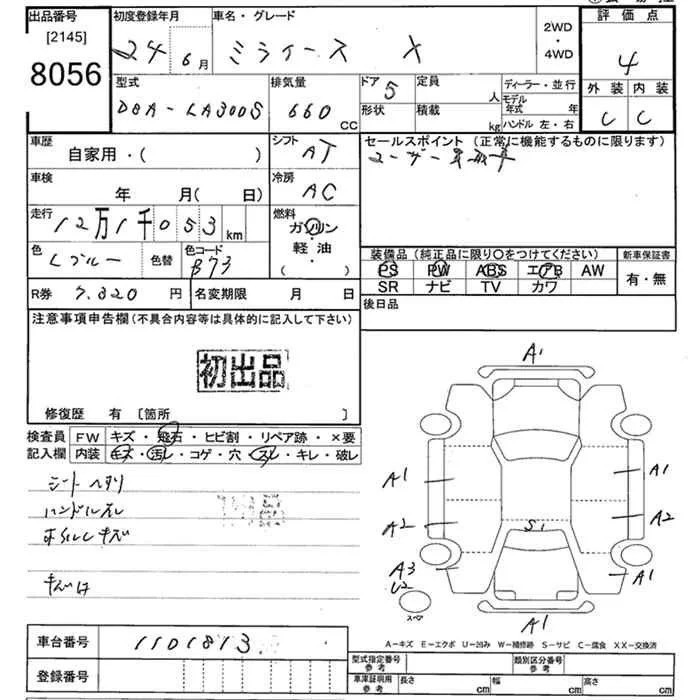 出品番号 初度登録年月 車名・グレード 2WD・4WD 評価点
[2145]
8056 24 6月 ミライース X 4
型式 排気量 ドア 5 定員 人 ディーラー・並行 外装 内装
DBA-LA300S 660 CC 形状 積載 kg モデル年式 年 C C
ハンドル 左・右
車歴 シフト セールスポイント (正常に機能するものに限ります)
自家用・( ) AT ユーザー買取車
車検 冷房
年 月( 日) AC
走行 燃料
12万1千053km ガソリン・軽油 ( )
色 Lブルー 色替 色コード B73
装備品 (純正品に限り○をつけてください) 新車保証書
PS PW ABS エアB AW 有・無
SR ナビ TV カワ
R券 7.320 円 名変期限 月 日 後日品
注意事項申告欄 (不具合内容等は具体的に記入して下さい)
初出品
修復歴 有 [箇所 ]
検査員記入欄 FW キズ・飛石・ヒビ割・リペア跡・×要
内装 キズ・汚レ・コゲ・穴・スレ・キレ・破レ
シートヘタリ
ハンドルスレ
A1
A1 A1
A2 A2
S1
A3 U2 A1
スペア
A1
A-キズ E-エクボ U-凹み W-補修跡 S-サビ C-腐食 XX-交換済
車台番号 1101813
登録番号
型式指定番号 参考 類別区分番号 参考
車庫証明用 参考 長さ cm 幅 cm 高さ cm